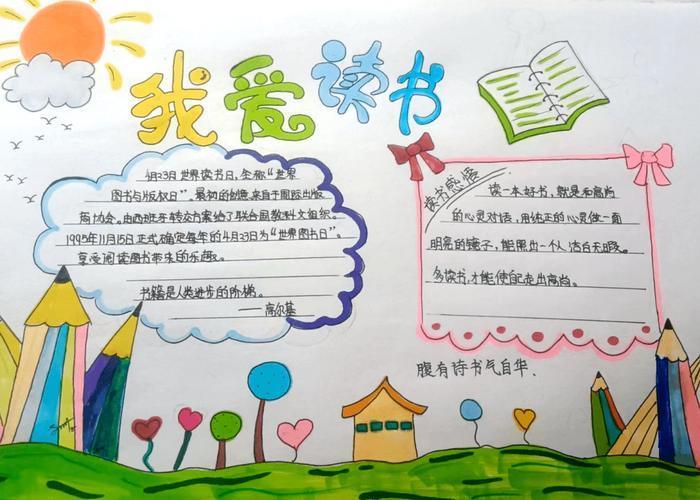 我爱读书
4月23日世界读书日,全称"世界
图书与版权日"。最初的创意来自于国际出版
商协会。由西班牙转交方案给了联合国教科文组织。
1995年11月15日正式确定每年的4月23日为"世界图书日"。
享受阅读图书带来的乐趣。
书籍是人类进步的阶梯。
——高尔基
读书感悟
读一本好书,就是和高尚
的心灵对话,用纯正的心灵做一面
明亮的镜子,能照出一个人洁白无暇。
多读书,才能使自己走出高尚。
腹有诗书气自华.